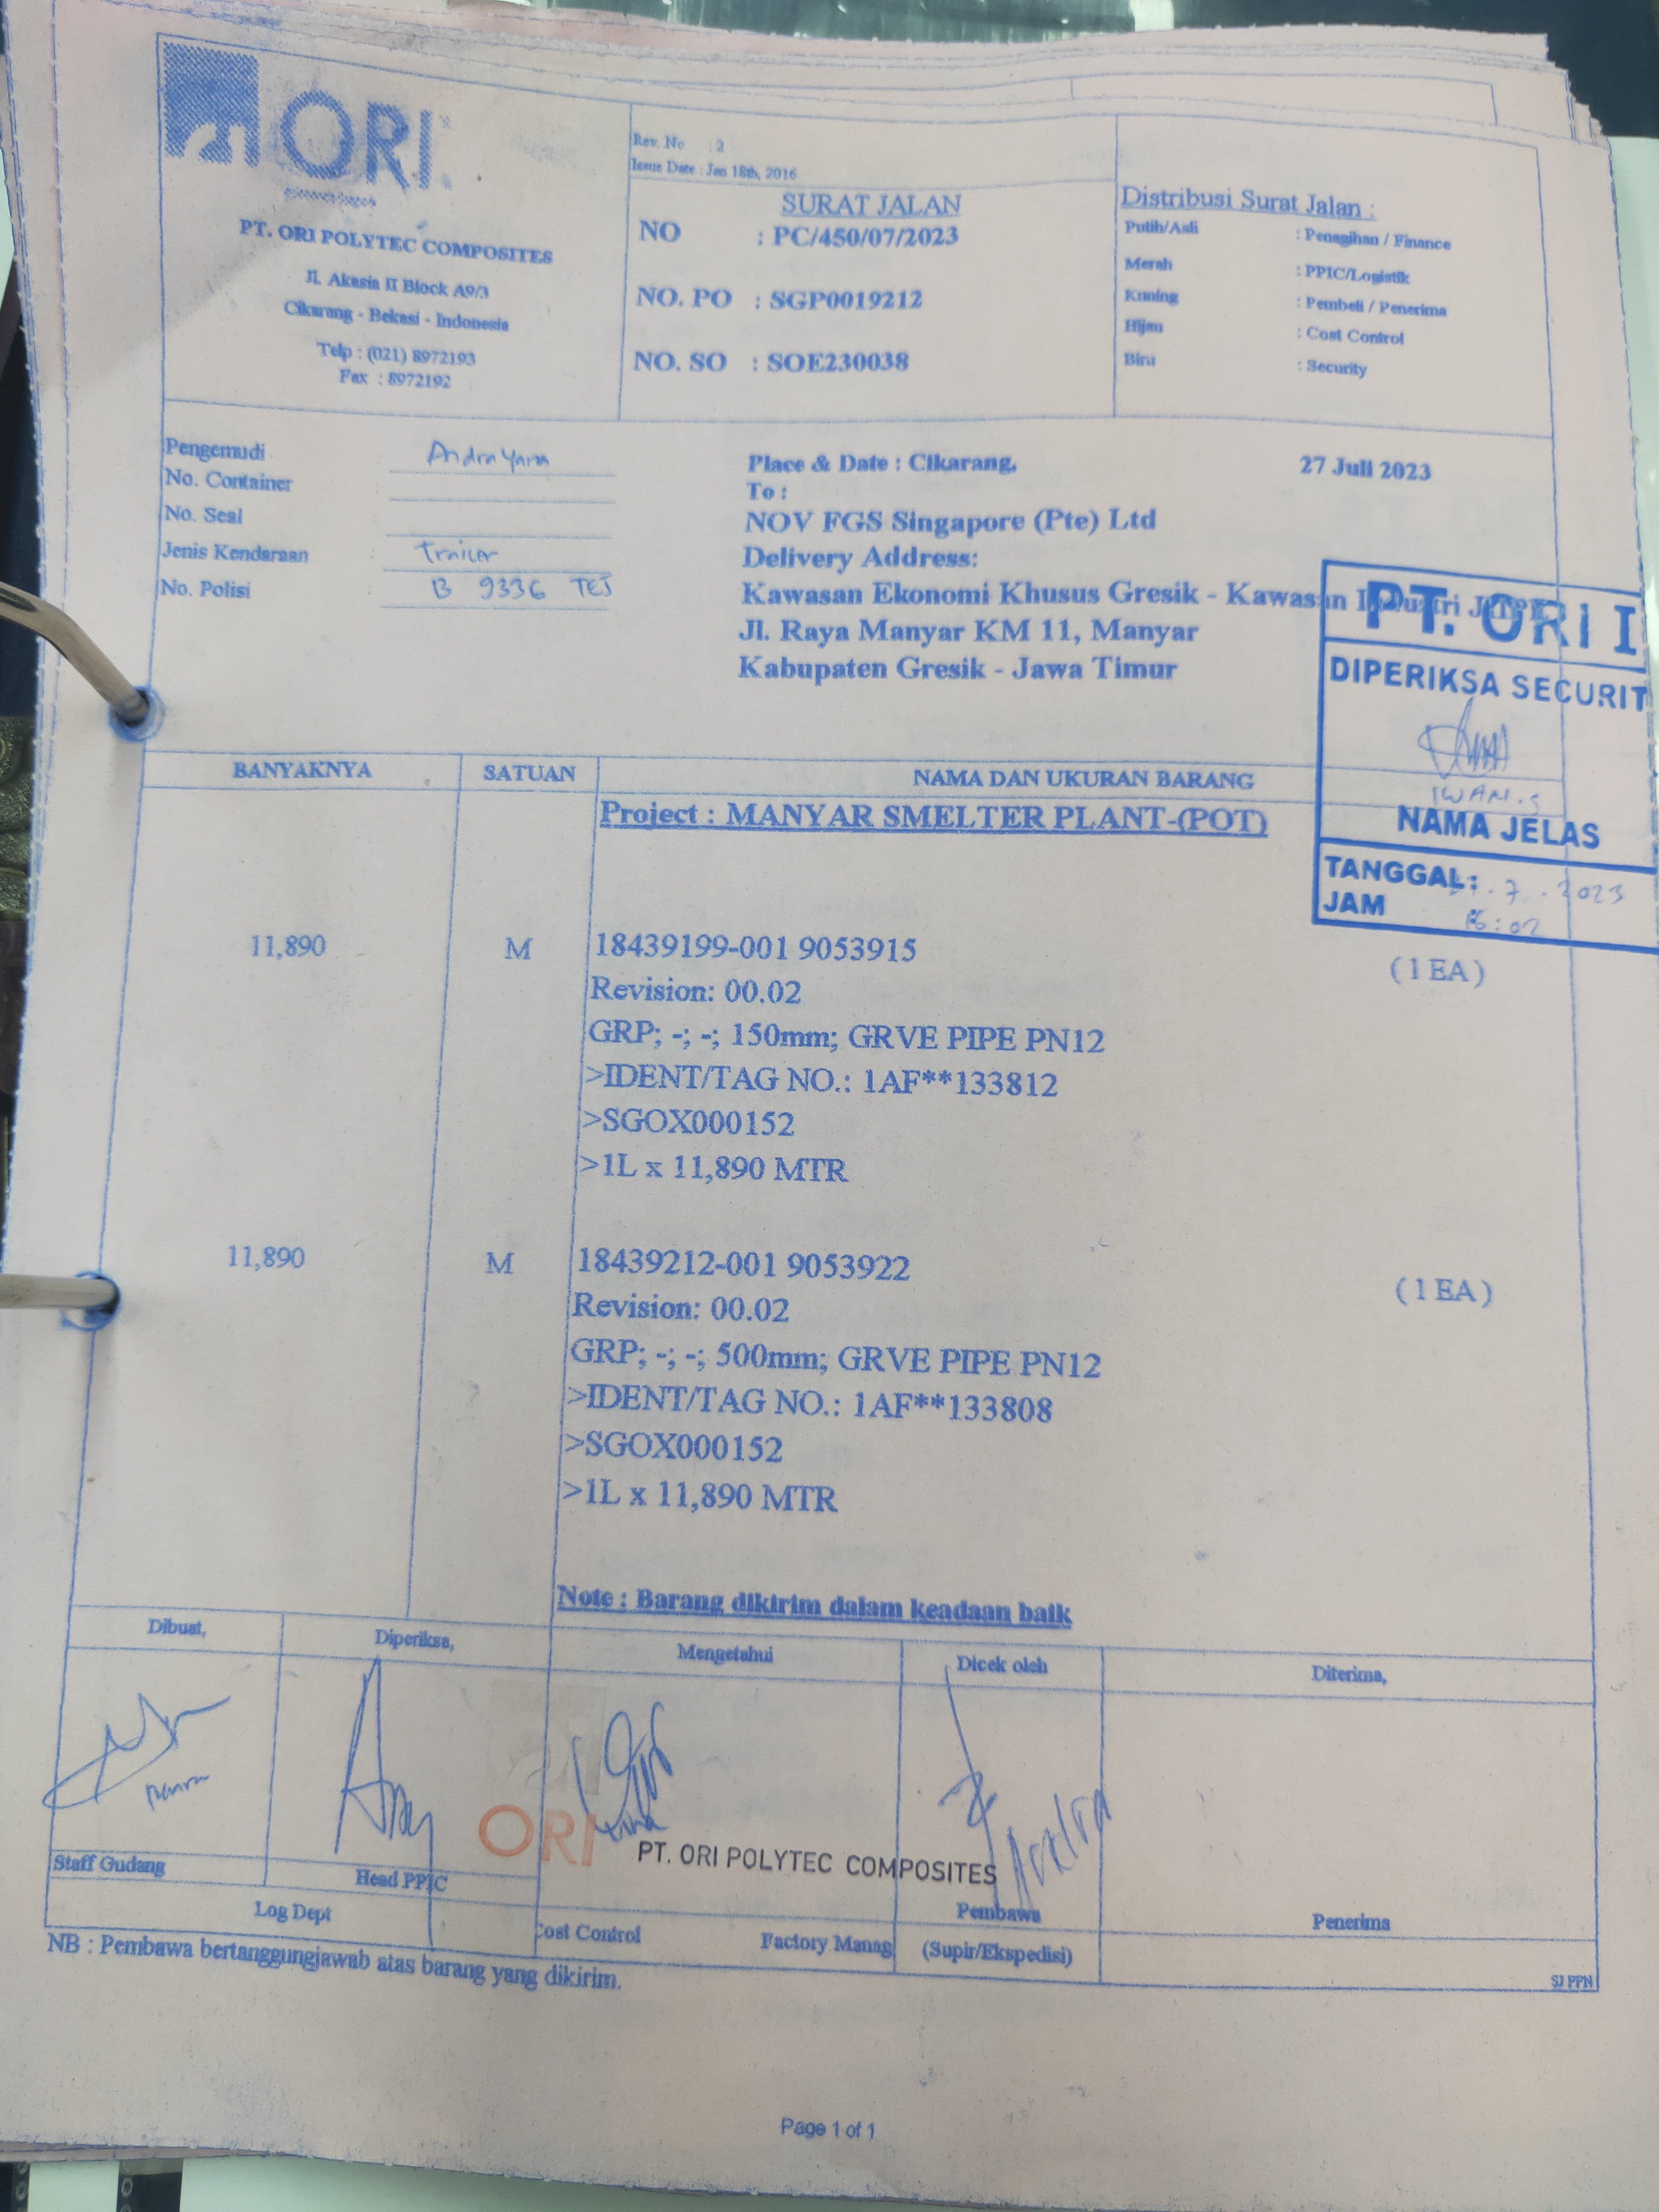 ORI
PT. ORI POLYTEC COMPOSITES
Jl. Akasia II Block A9/3
Cikarang - Bekasi - Indonesia
Telp : (021) 8972193
Fax : 8972192
Rev. No : 2
Issue Date : Jan 18th, 2016
SURAT JALAN
NO : PC/450/07/2023
NO. PO : SGP0019212
NO. SO : SOE230038
Distribusi Surat Jalan :
Putih/Asli : Penagihan / Finance
Merah : PPIC/Logistik
Kuning : Pembeli / Penerima
Hijau : Cost Control
Biru : Security
Pengemudi
No. Container
No. Seal
Jenis Kendaraan : Trailer
No. Polisi B 9336 TEJ
Place & Date : Cikarang, 27 Juli 2023
To :
NOV FGS Singapore (Pte) Ltd
Delivery Address:
Kawasan Ekonomi Khusus Gresik - Kawasan Industri JIIPE
Jl. Raya Manyar KM 11, Manyar
Kabupaten Gresik - Jawa Timur
PT. ORI I
DIPERIKSA SECURIT
IWAN.S
NAMA JELAS
TANGGAL: .7.2023
JAM :02
BANYAKNYA SATUAN NAMA DAN UKURAN BARANG
Project : MANYAR SMELTER PLANT-(POT)
11,890 M 18439199-001 9053915 (1 EA)
Revision: 00.02
GRP; -; -; 150mm; GRVE PIPE PN12
>IDENT/TAG NO.: 1AF**133812
>SGOX000152
>1L x 11,890 MTR
11,890 M 18439212-001 9053922 (1 EA)
Revision: 00.02
GRP; -; -; 500mm; GRVE PIPE PN12
>IDENT/TAG NO.: 1AF**133808
>SGOX000152
>1L x 11,890 MTR
Note : Barang dikirim dalam keadaan baik
Dibuat, Diperiksa, Mengetahui Dicek oleh Diterima,
ORI PT. ORI POLYTEC COMPOSITES
Staff Gudang Head PPIC Pembawa Penerima
Log Dept Cost Control Factory Manag (Supir/Ekspedisi)
NB : Pembawa bertanggungjawab atas barang yang dikirim.
SJ PPN
Page 1 of 1